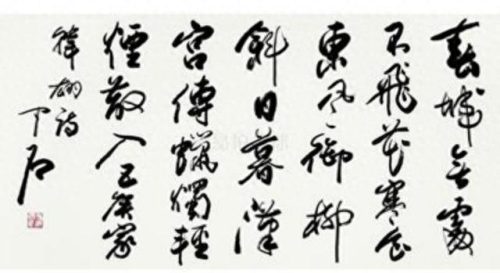 春城無處
不飛花寒食
東風御柳
斜日暮漢
宮傳蠟燭輕
煙散入五侯家
韓翃詩